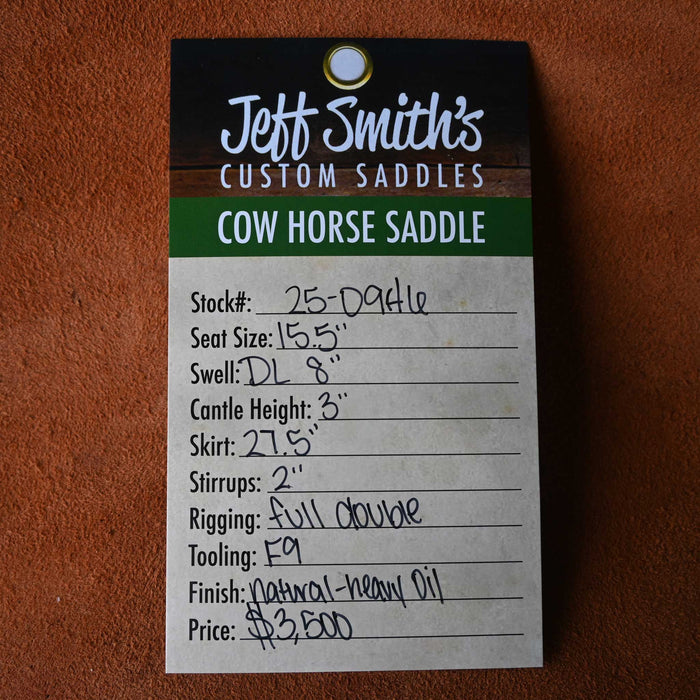 Jeff Smith's
CUSTOM SADDLES
COW HORSE SADDLE
Stock#: 25-0946
Seat Size: 15.5"
Swell: DL 8"
Cantle Height: 3"
Skirt: 27.5"
Stirrups: 2"
Rigging: full double
Tooling: F9
Finish: natural-heavy Oil
Price: $3,500